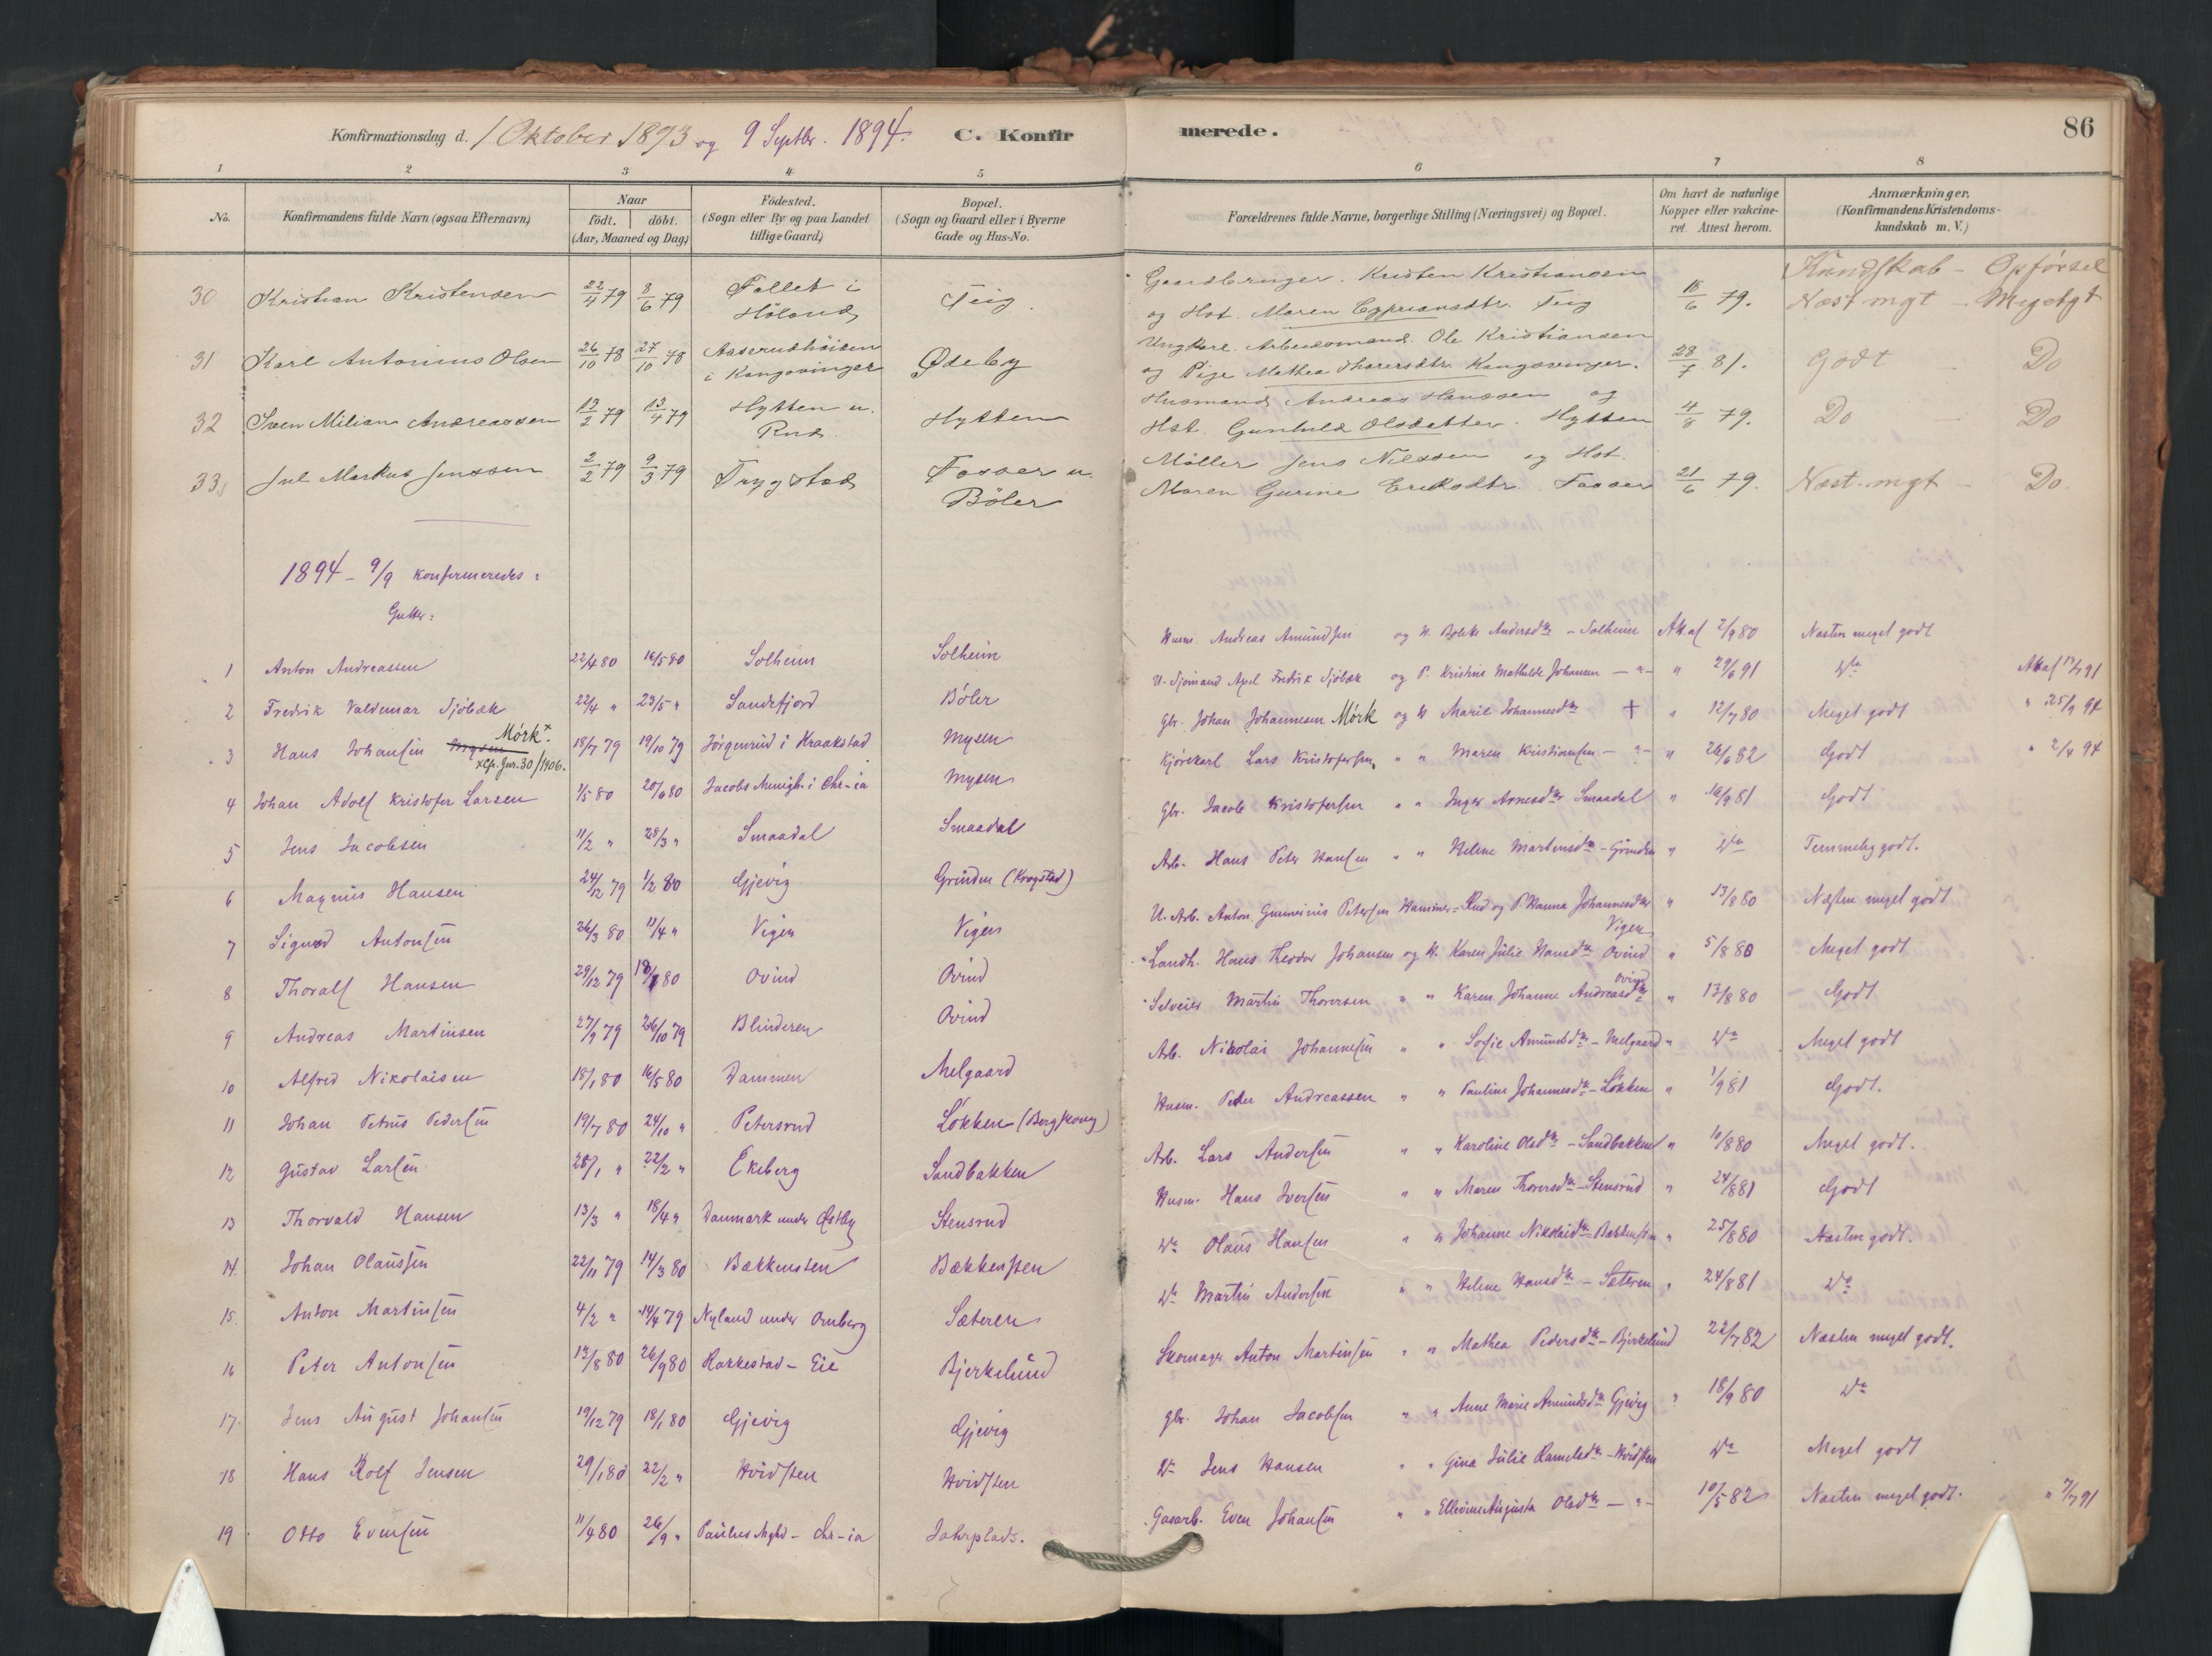 Konfirmationsdag d. 1 Oktober 1893 og 9 Septbr. 1894. C. Konfirmerede. 86
1 2 3 4 5 6 7 8
No. Konfirmandens fulde Navn (ogsaa Efternavn) Naar født. døbt. (Aar, Maaned og Dag.) Fødested. (Sogn eller By og paa Landet tillige Gaard.) Bopæl. (Sogn og Gaard eller i Byerne Gade og Hus-No. Forældrenes fulde Navne, borgerlige Stilling (Næringsvei) og Bopæl. Om havt de naturlige Kopper eller vakcineret. Attest herom. Anmærkninger. (Konfirmandens Kristendomskundskab m. V.)
Kundskab - Opførsel
30 Kristian Kristensen 22/4 79 8/6 79 Fallet i Høland Teig Gaardbruger Kristen Kristiansen og Hst. Maren Cypriansdtr. Teig 18/6 79. Næst mgt - Megetgt
31 Karl Antonius Olsen 26/10 78 27/10 78 Aaserudhøiden i Kongsvinger Ødeby Ungkarl Arbeidsmand Ole Kristiansen og Pige Mathea Thorersdtr. Kongsvinger. 28/7 81. Godt - Do
32 Sven Milian Andreassen 12/2 79 13/4 79 Hytten u. Rud Hytten Husmand Andreas Hanssen og Hst. Gunhild Olsdatter. Hytten 4/8 79. Do - Do
33. Jul Markus Jenssen 2/2 79 9/3 79 Trygstad Fosser u. Böler Möller Jens Nilssen og Hst. Maren Gurine Eriksdtr. Fosser 21/6 79. Næst. mgt - Do.
1894 - 9/9 konfirmeredes:
Gutter:
1 Anton Andreassen 22/4 80 16/5 80 Solheim Solheim Husm. Andreas Amundsen og H. Bolette Andersdtr - Solheim Att. af 2/9 80 Næsten meget godt
2 Fredrik Valdemar Sjöbæk 22/4 " 23/5 " Sandefjord Böler U. Sjömand Axel Fredrik Sjöbæk og P. Kristine Mathilde Johansen - " - " 29/6 91 Do Att. af 13/7 91
3 Hans Johansen Mysen Mörk x xCfr. Jnr. 30/1906. 18/7 79 19/10 79 Jörgenrud i Kraakstad Mysen Gbr. Johan Johannesen Mörk og H Marie Johannesdtr † " 12/7 80 Meget godt " 25/9 94
4 Johan Adolf Kristofer Larsen 1/5 80 20/6 80 Jacobs Menigh. i Chr-ia Mysen Kjörekarl Lars Kristofersen " " Maren Kristiansen - " - " 26/6 82 Godt " 2/4 94
5 Jens Jacobsen 11/2 " 28/3 " Smaadal Smaadal Gbr. Jacob Kristofersen " " Inger Arnesdtr Smaadal " 16/9 81 Godt
6 Magnus Hansen 24/12 79 1/2 80 Gjevig Grinden (Krogstad) Arb. Hans Peter Hansen " " Helene Martinsdtr - Grinden " Do Temmelig godt.
7 Sigurd Antonsen 26/3 80 11/4 " Vigen Vigen U. Arb. Anton Gunerius Petersen Hammer-Rud og P. Hanna Johannesdtr Vigen " 13/8 80 Næsten meget godt
8 Thoralf Hansen 29/12 79 18/1 80 Ovind Ovind Landh. Hans Theodor Johansen og H. Karen Julie Hansdtr Ovind " 5/8 80 Meget godt
9 Andreas Martinsen 27/9 79 26/10 79 Blinderen Ovind Selveier Martin Thorersen " " Karen Johanne Andreasdtr Ovind " 13/8 80 Godt
10 Alfred Nikolaisen 18/1 80 16/5 80 Dammen Melgaard Arb. Nikolai Johannesen " " Sofie Amundsdtr - Melgaard " Do Meget godt
11 Johan Petrus Pedersen 19/7 80 24/10 " Petersrud Lökken (Bergskoug) Husm. Peder Andreassen " " Pauline Johannesdtr - Lökken " 1/9 81 Godt.
12 Gustav Larsen 28/1 " 22/2 " Ekeberg Sandbakken Arb. Lars Andersen " " Karoline Olsdtr - Sandbakken " 10/8 80 Meget godt.
13 Thorvald Hansen 13/3 " 18/4 " Danmark under Østby Stensrud Husm. Hans Iversen " " Maren Thorersdtr - Stensrud " 24/8 81 Godt
14. Johan Olaussen 22/11 79 14/3 80 Bækkensten Bækkensten Do Olaus Hansen " " Johanne Nikolaisdtr Bækkensten " 25/8 80 Næsten godt.
15. Anton Martinsen 4/2 " 14/4 79 Nyland under Omberg Sæteren Do Martin Andersen " " Helene Hansdtr - Sæteren " 24/8 81 Do
16 Peter Antonsen 13/8 80 26/9 80 Rakkestad - Eie Bjerkelund Skomager Anton Martinsen " " Mathea Pedersdtr - Bjerkelund 22/7 82 Næsten meget godt.
17. Jens August Johansen 19/12 79 18/1 80 Gjevig Gjevig Gbr. Johan Jacobsen " " Anne Marie Amundsdtr Gjevig " 18/9 80 Do
18 Hans Rolf Jensen 29/1 80 22/2 " Hvidsten Hvidsten Do Jens Hansen " " Gina Julie Ramelsdtr - Hvidsten Do Meget godt
19 Otto Evensen 11/4 80 26/9 " Paulus Mghd - Chr-ia Jahrplads. Gasarb. Even Johansen " " Ellevine Augusta Olsdtr - " - 10/5 82 Næsten meget godt. " 7/7 91